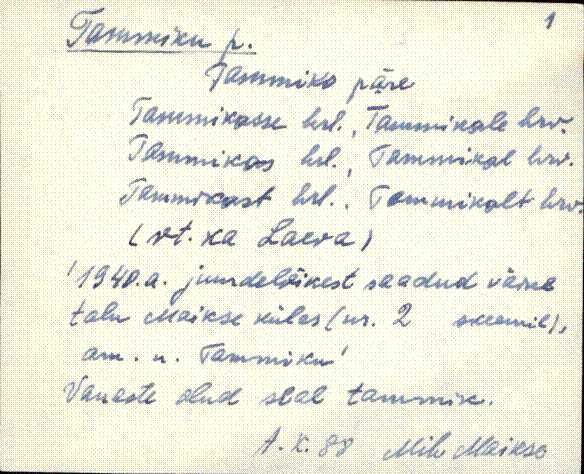 1
Tammiku p.
Tammiko päre
Tammikasse hrl., Tammikale hrv.
Tammikas hrl., Tammikal hrv.
Tammikast hrl., Tammikalt hrv.
(vt. ka Laeva)
'1940.a. juurdelõikest saadud väike
talu Maikse külas (nr. 2 skeemil),
am. n. Tammiku'
Vanaste olud seal tammik.
A.K. 88 Mih Maikse